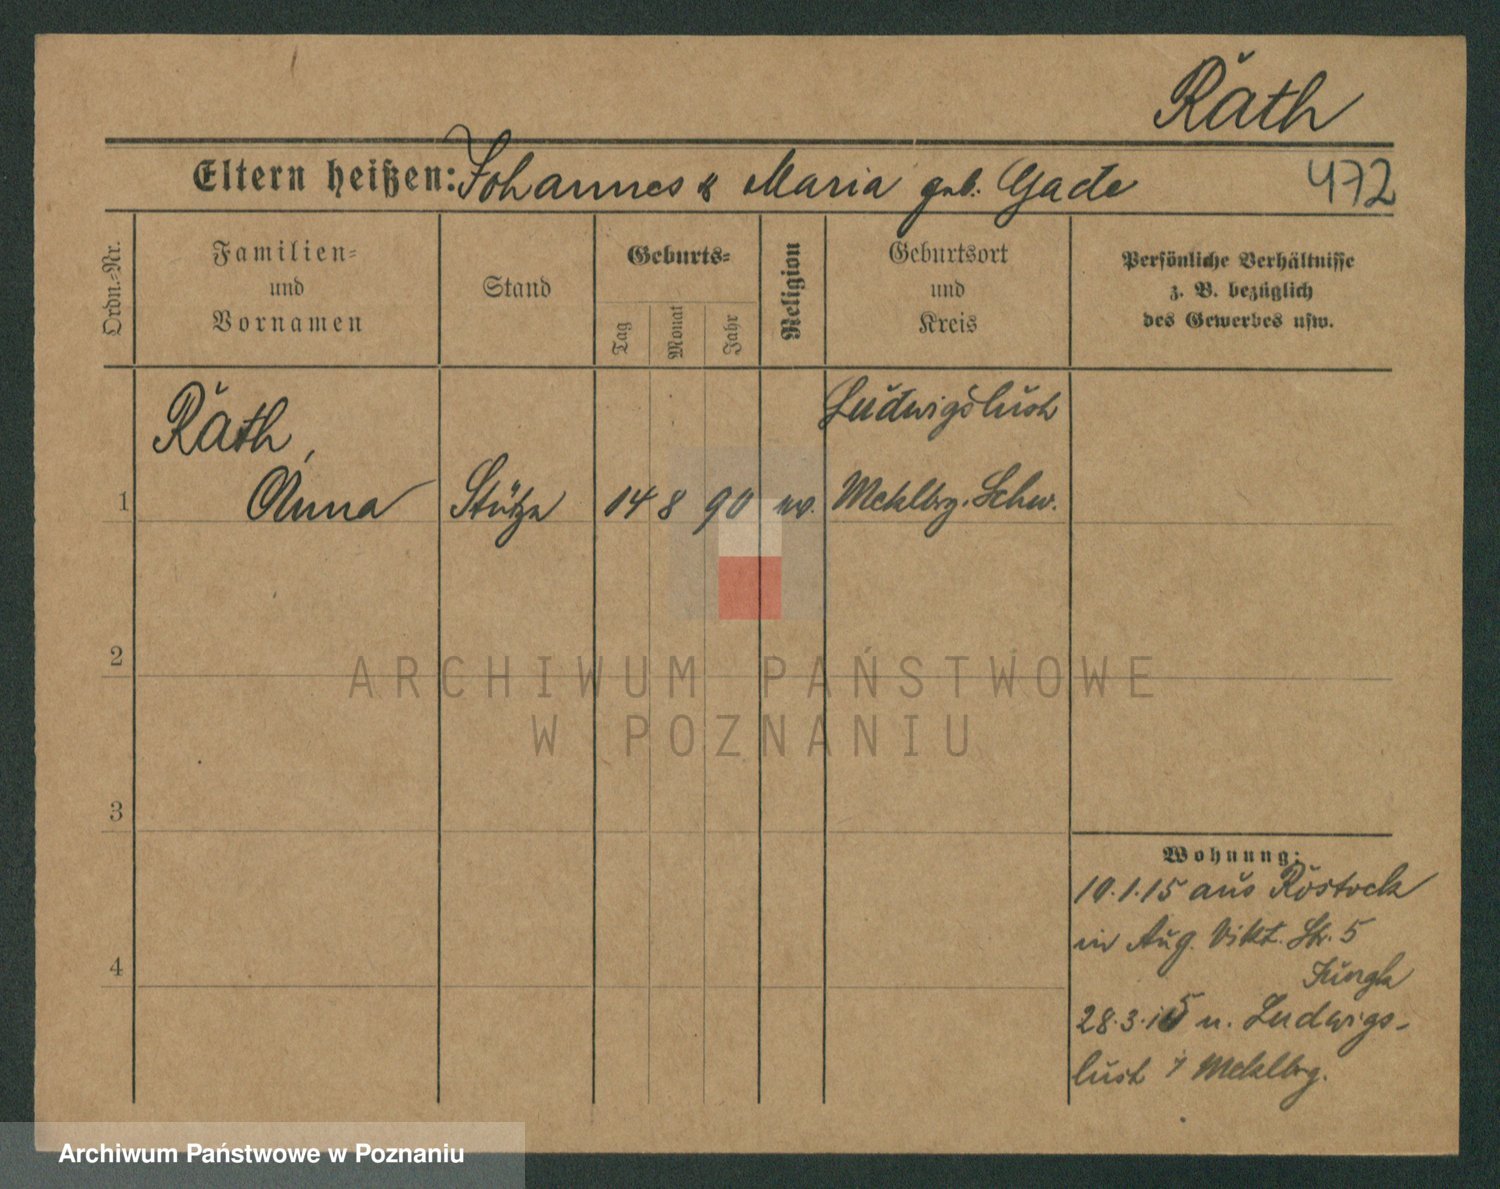 Räth
Eltern heißen: Johannes & Maria geb. Gade
472
Ordn.-Nr.
Familien-
und
Vornamen
Stand
Geburts-
Tag
Monat
Jahr
Religion
Geburtsort
und
Kreis
Persönliche Verhältnisse
z. B. bezüglich
des Gewerbes usw.
Räth,
Ludwigslust
1
Anna
Stütze
14
8
90
ev.
Mcklbrg. Schw.
2
ARCHIWUM PAŃSTWOWE
W POZNANIU
3
Wohnung:
10.1.15 aus Rostock
in Aug. Vikt. Str. 5
4
28.3.15 n. Ludwigs-
lust / Mcklbrg.
Archiwum Państwowe w Poznaniu